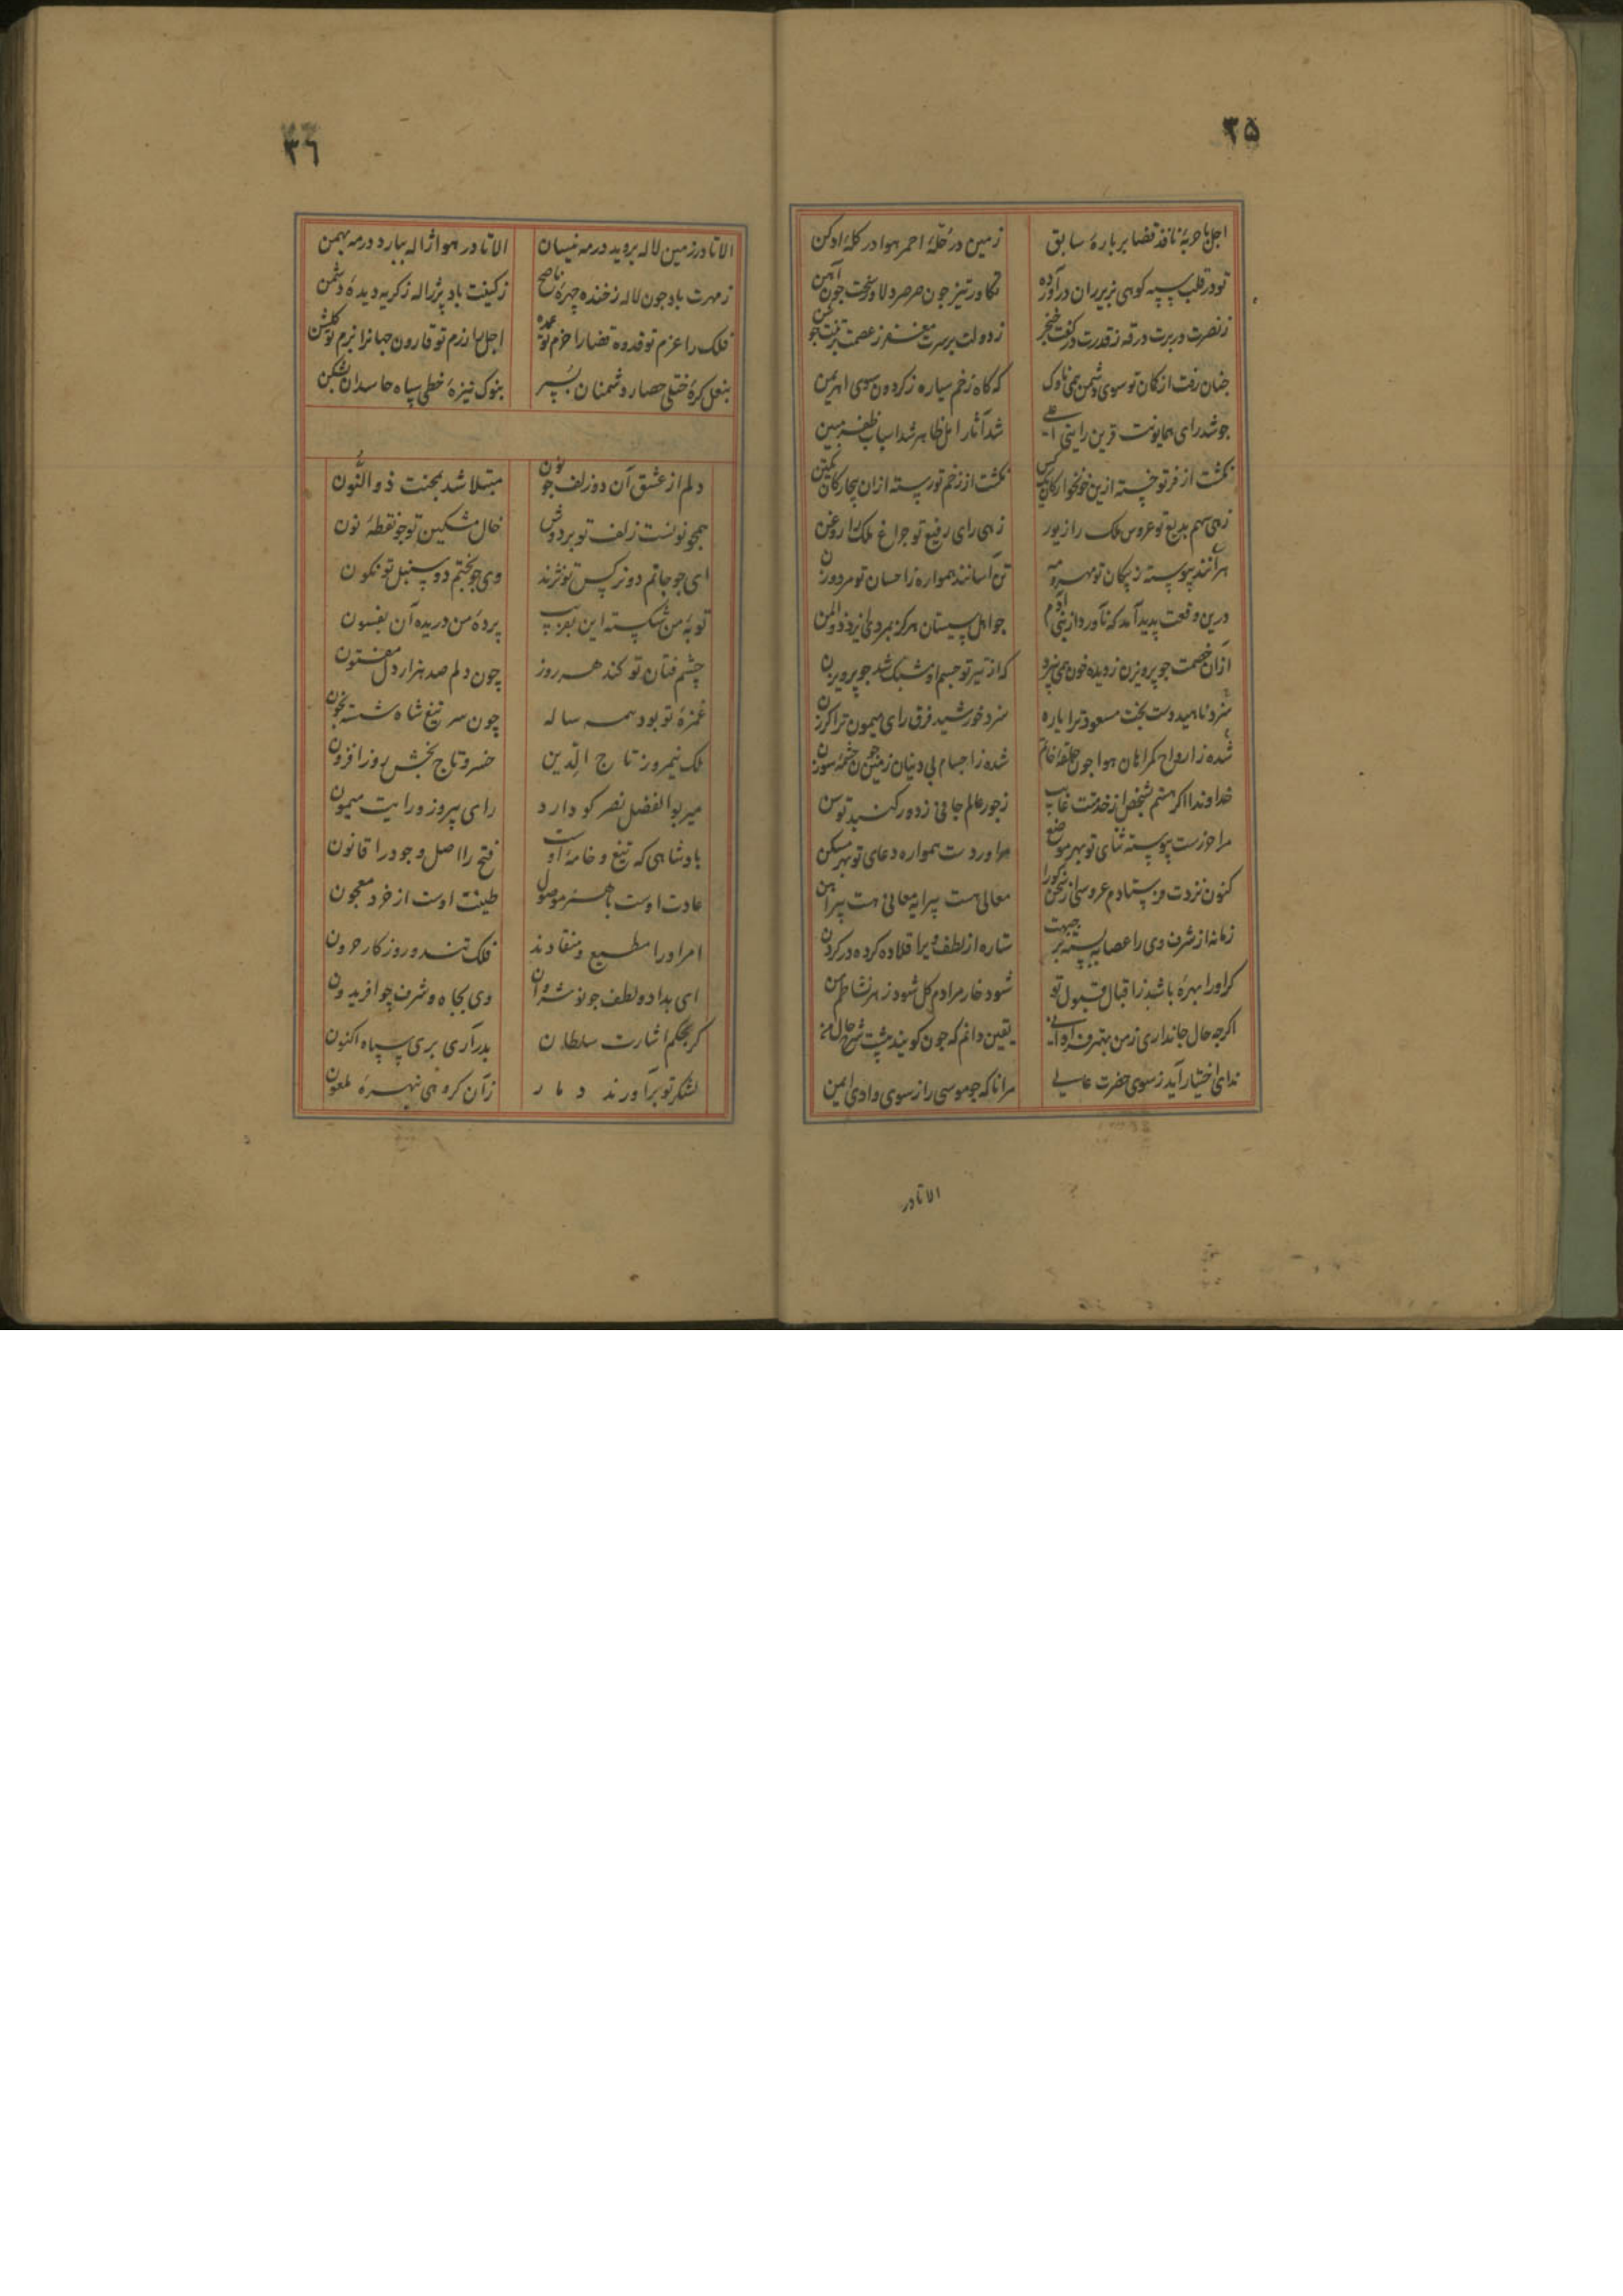 ۳۵
اجل با حربهٔ نافذ قضا بر بارهٔ سابق زمین در حلهٔ احمر هوا در کلهٔ ادکن
تو در قلب سپه کوهی بزیر ران درآورده تکاور تیز چون صرصر دلاور سخت چون آهن
ز نصرت در برت درقه ز قدرت در کفت خنجر ز دولت بر سرت مغفر ز عصمت بر تنت جوشن
چنان رفت از کمان تو سوی دشمن همی ناوک که گاه زخم سیاره ز گردون سوی اهریمن
جو شد رای همایونت قرین رایتی شد آثار امل ظاهر شد اسباب ظفر مبین
نکشت از فر تو خسته ازین خونخوارکان یک کس نکشت از زخم تو رسته ازان بیچارکان یک تن
زهی سهم بدیع تو عروس ملک را زیور زهی رای رفیع تو جراغ ملک را روغن
هراسانند پیوسته ز پیکان تو مهر و مه تن آسانند همواره ز احسان تو مرد و زن
درین وقعت پدید آمد که ناورد از بنی آدم جو اهل سیستان هرکز بمردی ایزد ذوالمن
ازان خصمت جو پرویزن ز دیده خون همی بیزد که از تیر تو جسم او مشبک شد جو پرویزن
سزد ناهید دست بخت مسعود ترا یاره سزد خورشید فرق رای میمون ترا کرزن
شده ز ارواح کمراهان هوا جون حلقهٔ خاتم شده ز اجسام بی دینان زمین جون چشمهٔ سوزن
خداوندا اکر هستم بشخص از خدمتت غایب ز جور عالم جافی ز دور کنبد توسن
مرا حرزست پیوسته ثنای تو بهر موضع مرا وردست همواره دعای تو بهر مسکن
کنون نزدت فرستادم عروسی از سخن کورا معالی هست پیرایه معانی هست پیراهن
زمانه از شرف وی را عصابه بسته بر جبهت ستاره از لطف ویرا قلاده کرده در کردن
کر اورا بهرهٔ باشد ز اقبال قبول تو شود خار مرادم کل شود زهر نشاطم من
اکرچه حال جانداری ز من بهتر فراوانی یقین دانم که جون کویند پیشت شرح حال من
ندای اختیار آید ز سوی حضرت عالی مرانا که جو موسی را ز سوی وادی ایمن
الا تا در
۳٦
الا تا در زمین لاله بروید در مه نیسان الا تا در هوا ژاله ببارد در مه بهمن
ز مهرت باد جون لاله ز خنده چهرهٔ ناصح ز کینت باد پر ژاله ز کریه دیدهٔ دشمن
فلک را عزم تو قدوه قضا را حزم تو عمده اجل را رزم تو قارون جهانرا بزم تو کلشن
بنعل کرهٔ ختلی حصار دشمنان بسپر بنوک نیزهٔ خطی سپاه حاسدان بشکن
دلم از عشق آن دو زلف جو نون مبتلا شد بمحنت ذو النون
همچو نونست زلف تو بر دوش خال مشکین تو جو نقطهٔ نون
ای جو جانم دو نرکس تو نژند وی جو بختم دو سنبل تو نکون
توبهٔ من شکسته این بفریب پردهٔ من دریده آن بفسون
چشم فتان تو کند هر روز چون دلم صد هزار دل مفتون
غمزهٔ تو بود همه ساله چون سر تیغ شاه شسته بخون
ملک نیمروز تاج الدین خسرو تاج بخش روز افزون
میر بوالفضل نصر کو دارد رای پیروز و رایت میمون
پادشاهی که تیغ و خامهٔ اوست فتح را اصل و جود را قانون
عادت اوست با هنر موصول طینت اوست از خرد معجون
امر اورا مطیع و منقادند فلک تند و روزکار حرون
ای بداد و لطف جو نوشروان وی بجاه و شرف چو افریدون
کر بحکم اشارت سلطان بدرآری بری سپاه اکنون
لشکر تو برآورند دمار زان کروهی نبهرهٔ ملعون